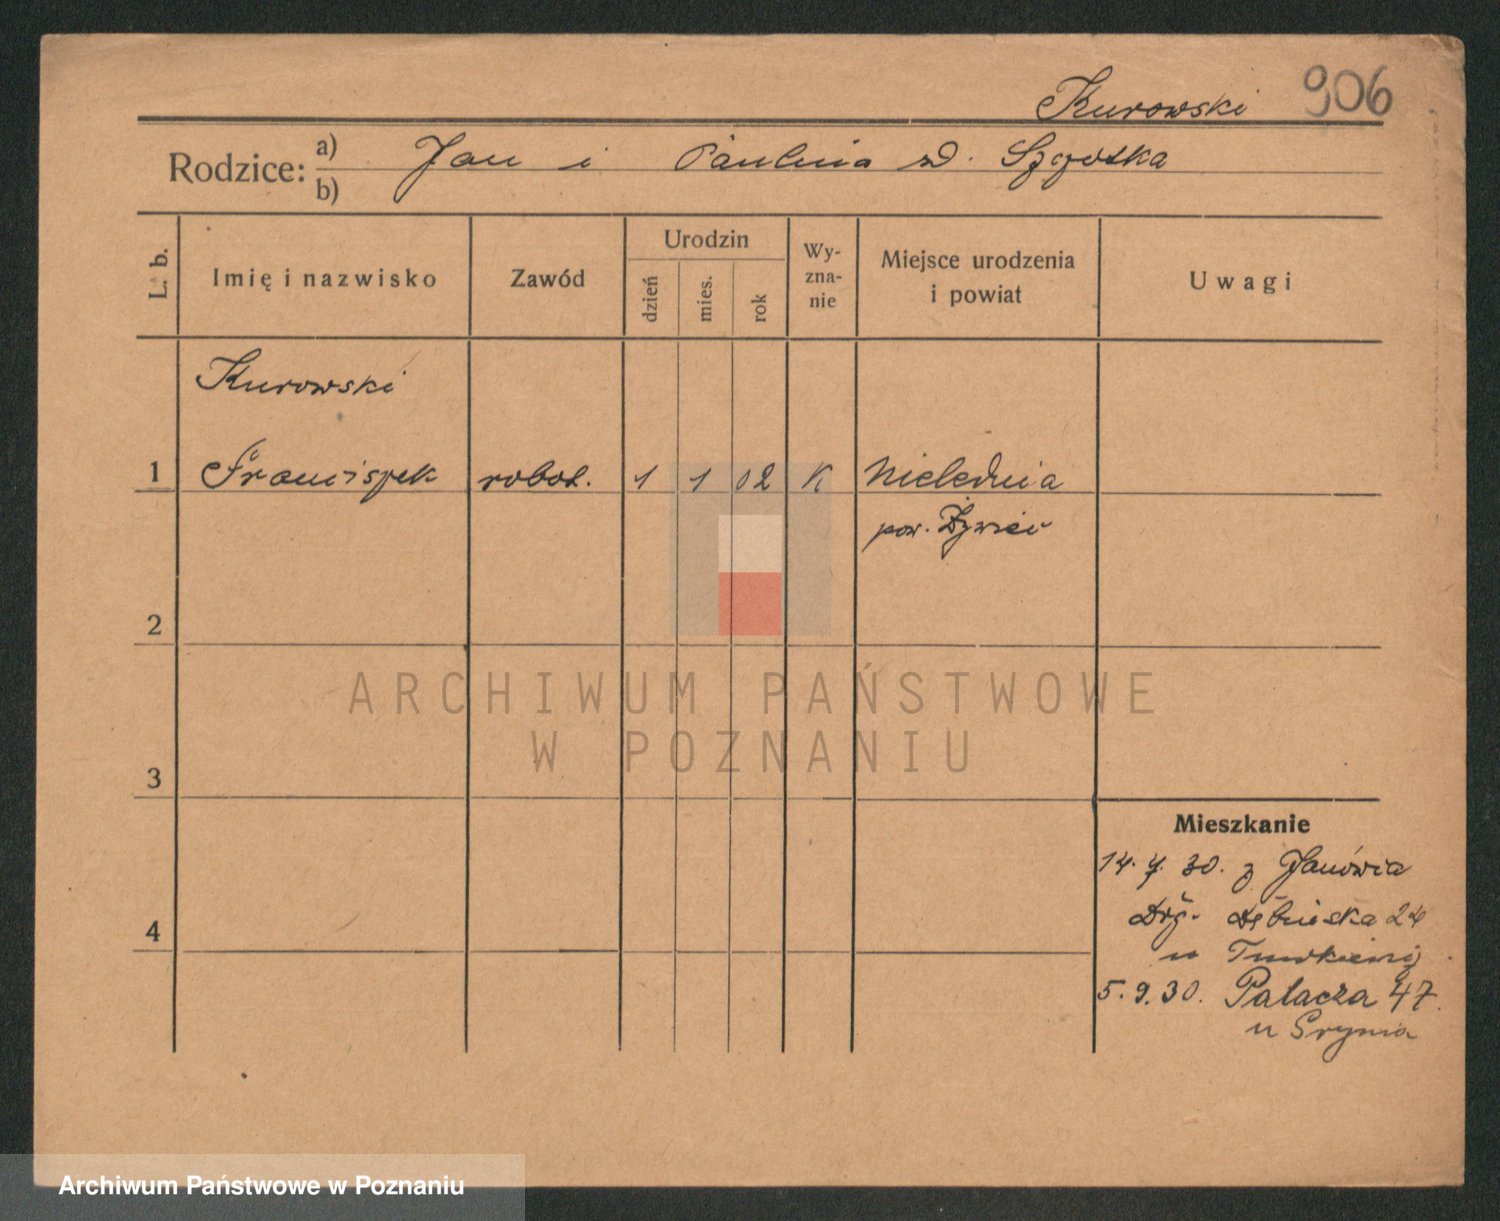 Kurowski 906
Rodzice: a) Jan i Paulina zd. Szczotka
b)
L. b. Imię i nazwisko Zawód Urodzin dzień mies. rok Wy-zna-nie Miejsce urodzenia i powiat Uwagi
Kurowski
1 Franciszek robot. 1 1 02 K Nieledwia
pow. Żywiec
2
ARCHIWUM PAŃSTWOWE
W POZNANIU
3
Mieszkanie
14. 7. 30. z Janówca
Drg. Dębińska 24
4
u
5. 9. 30. Palacza 47.
u
Archiwum Państwowe w Poznaniu